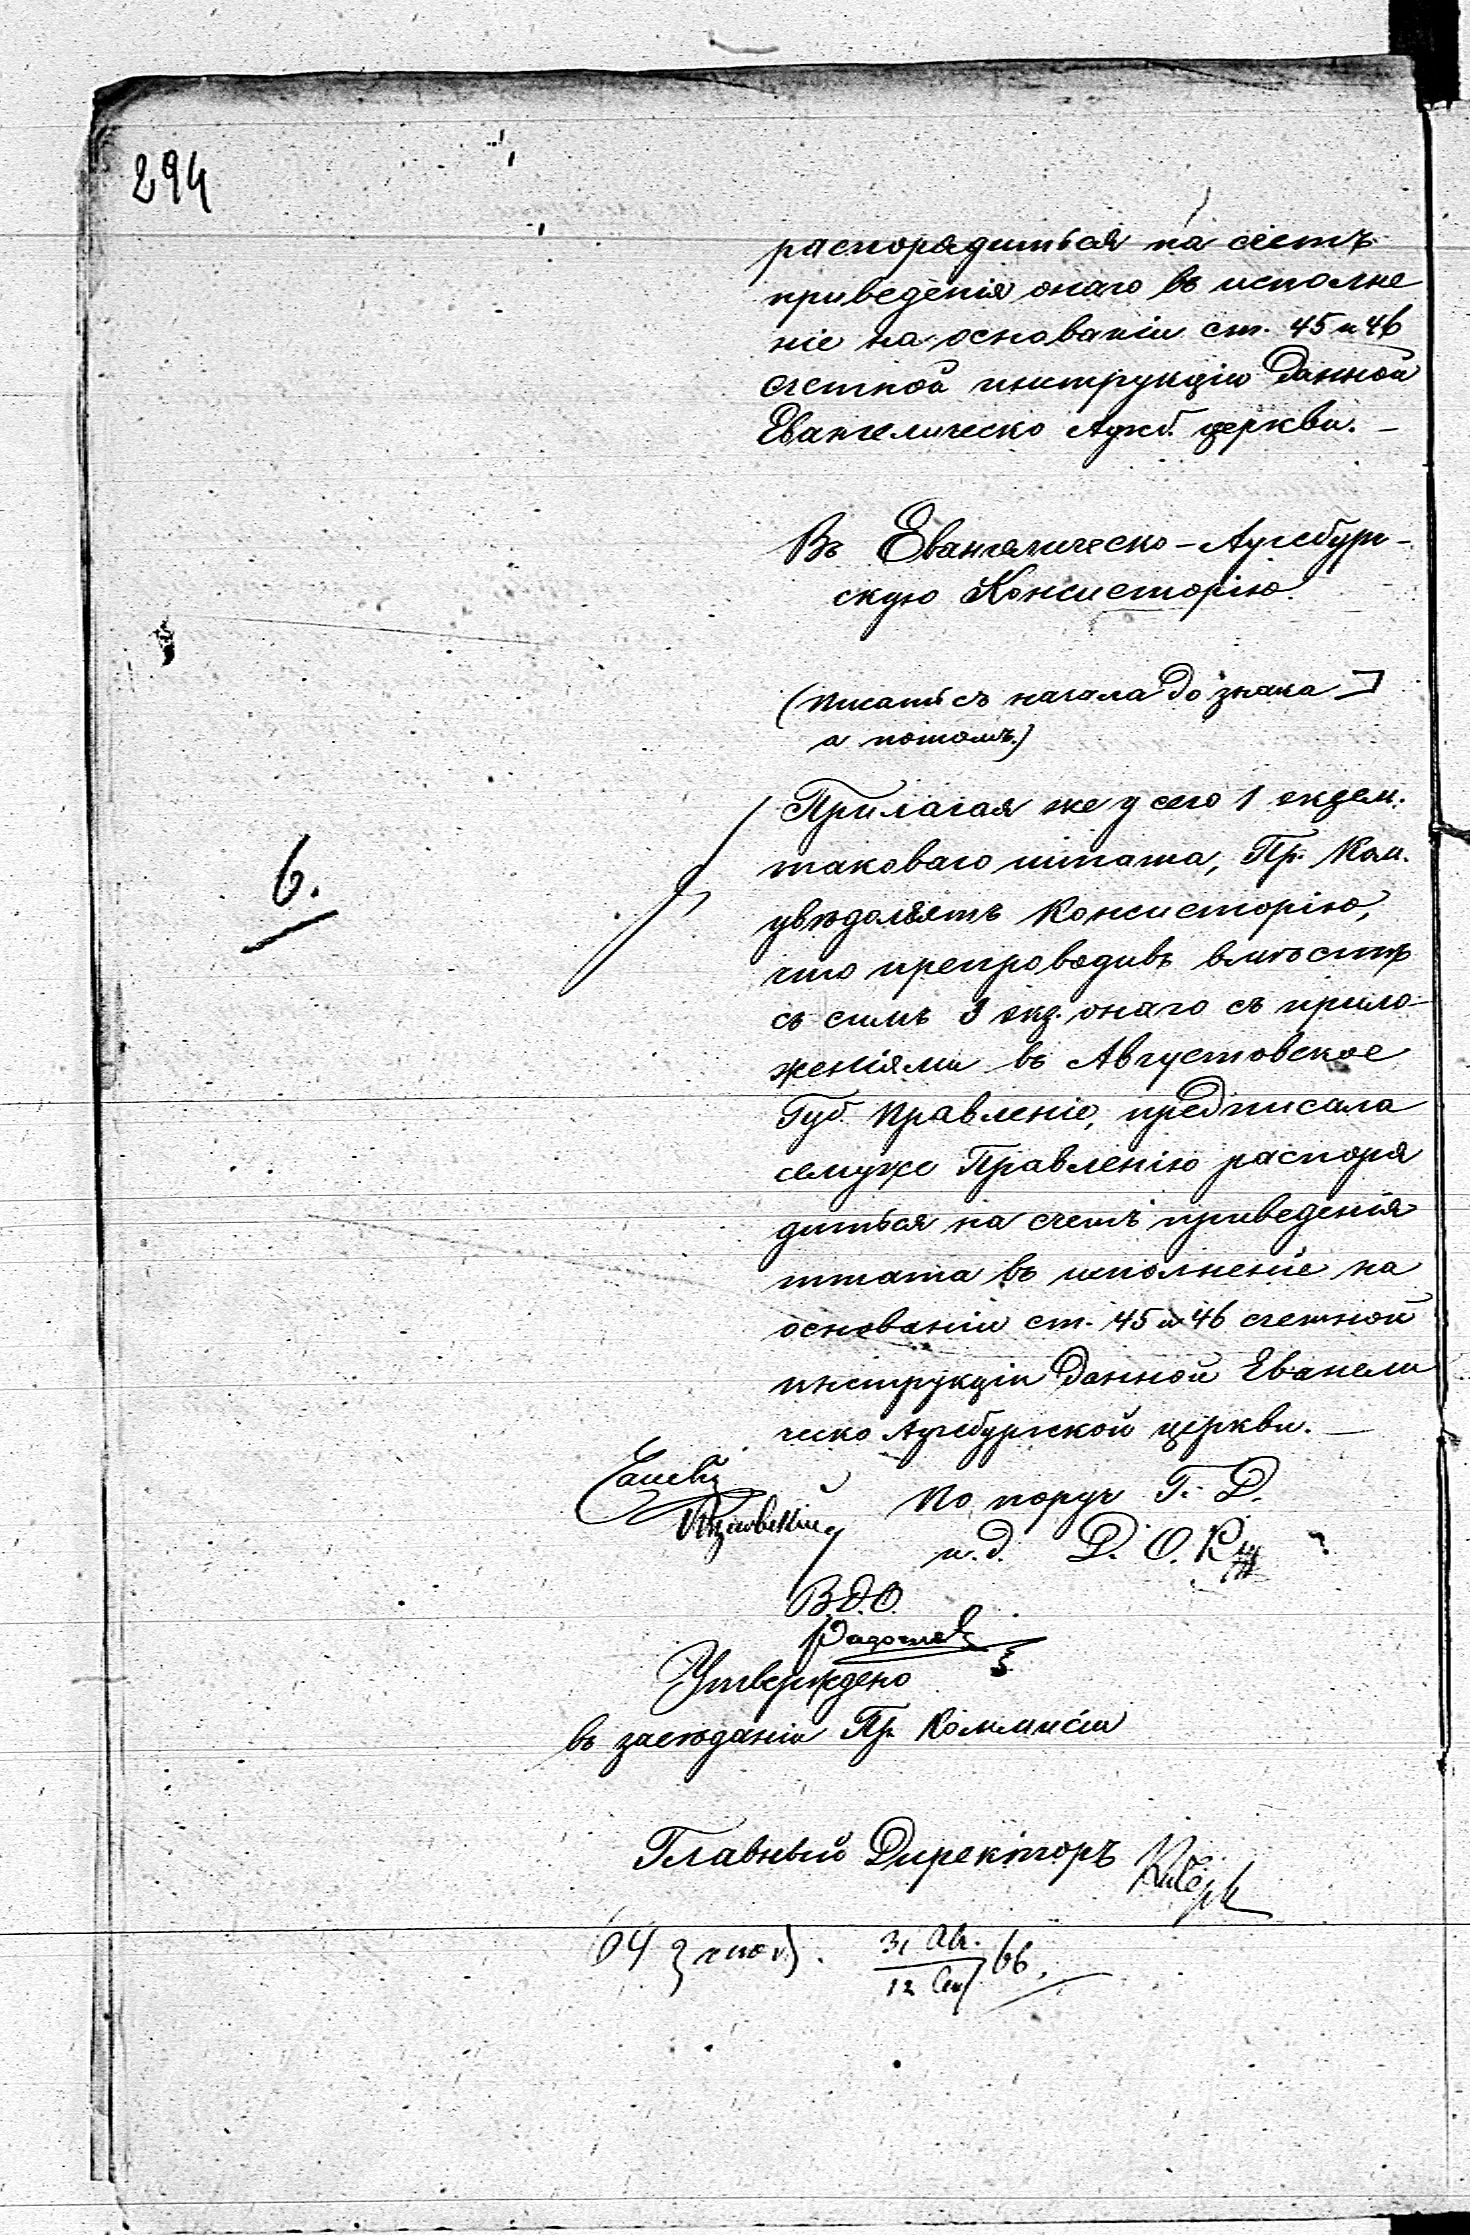 294
распорядиться на счетъ
приведенія онаго въ исполне
ніе на основаніи ст. 45 и 46
счетной инструкціи данной
Евангелическо Аугсб. церкви. –
Въ Евангелическо-Аугсбург-
скую Консисторію.
(писать съ начала до знака ]
а потомъ.)
Прилагая же у сего 1 екзем.
таковаго штата, Пр. Ком.
6.
увѣдомляетъ Консисторію,
что препроводивъ вмѣстѣ
съ симъ 3 екз. онаго съ прило-
женіями въ Августовское
Губ. Правленіе, предписала
семуже Правленію распоря
диться на счетъ приведенія
штата въ исполненіе на
основаніи ст. 45 и 46 счетной
инструкціи данной Евангели
ческо Аугсбургской церкви. –
По поруч Г. Д.
и. д. Д. О. К
В. Д. О.
Утверждено
въ засѣданіи Пр. Коммисіи
Главный Директоръ
31 Ав.
12 Сен 66.